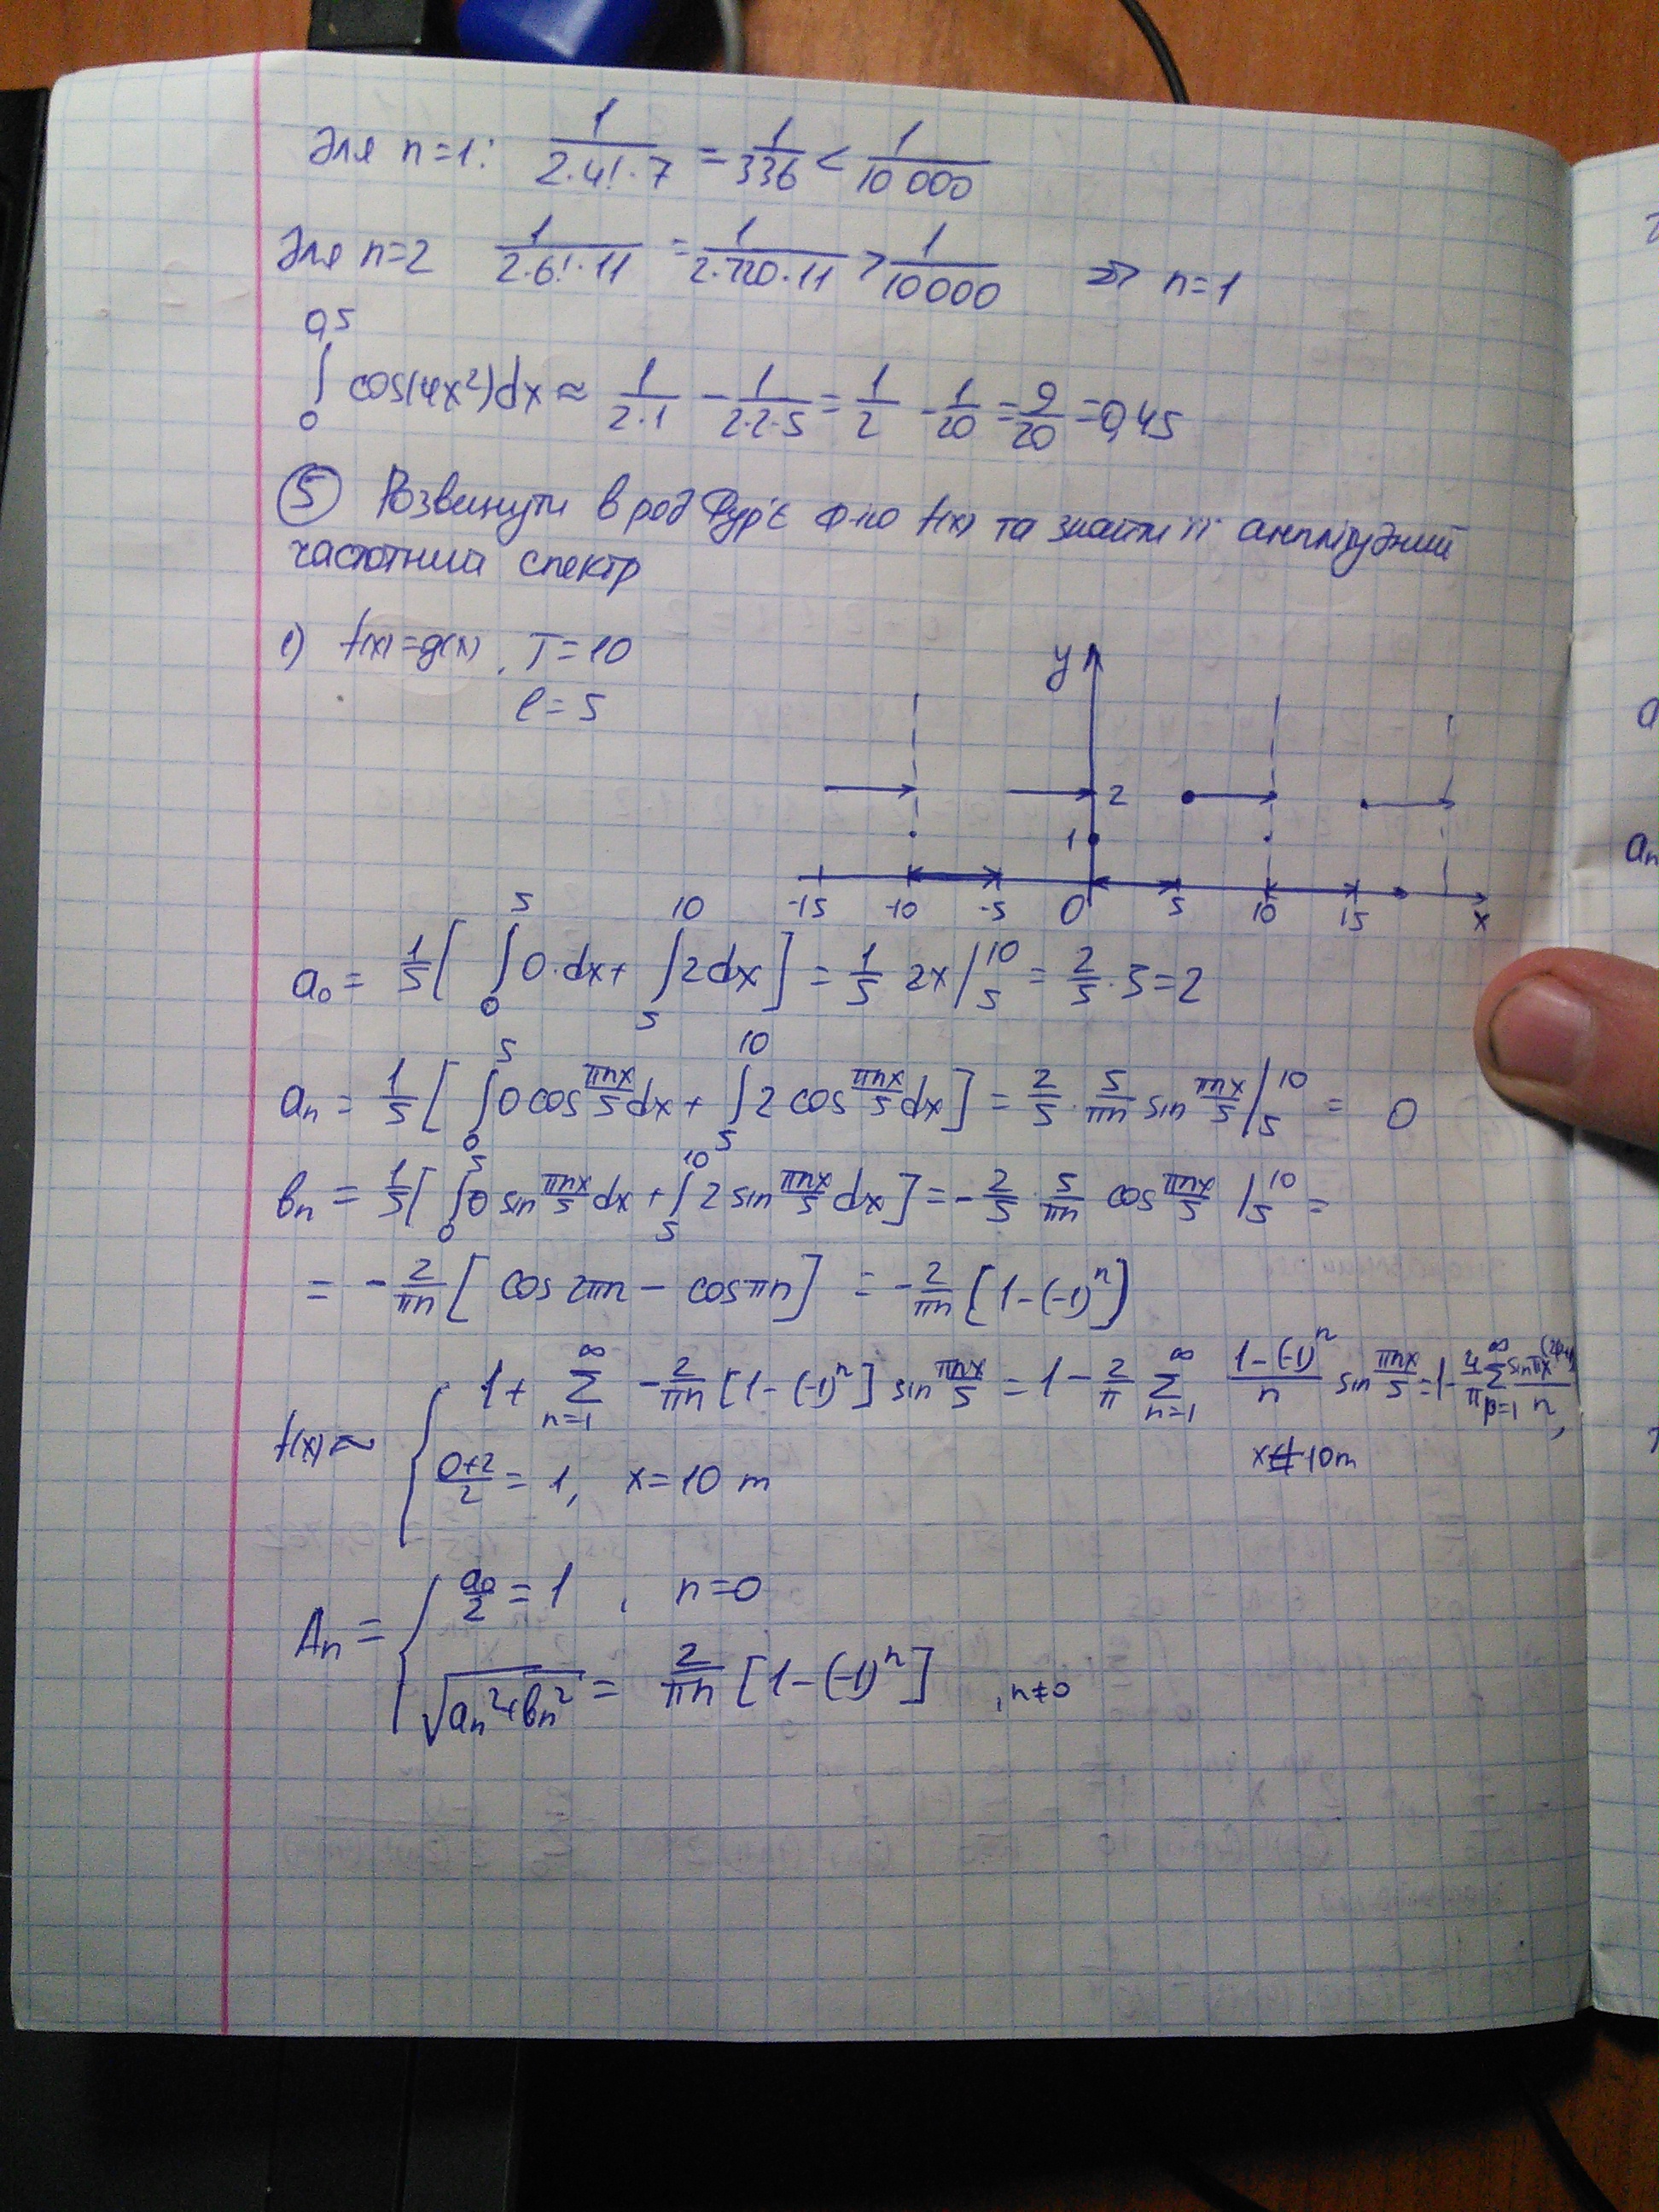 Для n=1: 1/(2·4!·7) = 1/336 < 1/10 000
Для n=2 1/(2·6!·11) = 1/(2·720·11) > 1/10000 ⇒ n=1
∫₀^0,5 cos(4x²)dx ≈ 1/(2·1) - 1/(2·2·5) = 1/2 - 1/20 = 9/20 = 0,45
⑤ Розвинути в ряд Фур'є ф-ію f(x) та знайти її амплітудний
частотний спектр
1) f(x)=g(x), T=10
l=5
y
2
1
-15 -10 -5 0 5 10 15 x
a₀ = 1/5 [ ∫₀^5 0·dx + ∫₅^10 2dx ] = 1/5 2x |₅^10 = 2/5 · 5 = 2
aₙ = 1/5 [ ∫₀^5 0 cos πnx/5 dx + ∫₅^10 2 cos πnx/5 dx ] = 2/5 · 5/πn sin πnx/5 |₅^10 = 0
bₙ = 1/5 [ ∫₀^5 0 sin πnx/5 dx + ∫₅^10 2 sin πnx/5 dx ] = - 2/5 · 5/πn cos πnx/5 |₅^10 =
= - 2/πn [ cos 2πn - cos πn ] = - 2/πn [1-(-1)ⁿ]
f(x) ~ { 1 + ∑_{n=1}^∞ - 2/πn [1-(-1)ⁿ] sin πnx/5 = 1 - 2/π ∑_{n=1}^∞ (1-(-1)ⁿ)/n sin πnx/5 = 1 - 4/π ∑_{p=1}^∞
x≠10m
(0+2)/2 = 1, x=10 m
Aₙ = { a₀/2 = 1 , n=0
√(aₙ²+bₙ²) = 2/πn [1-(-1)ⁿ] , n≠0
a
aₙ